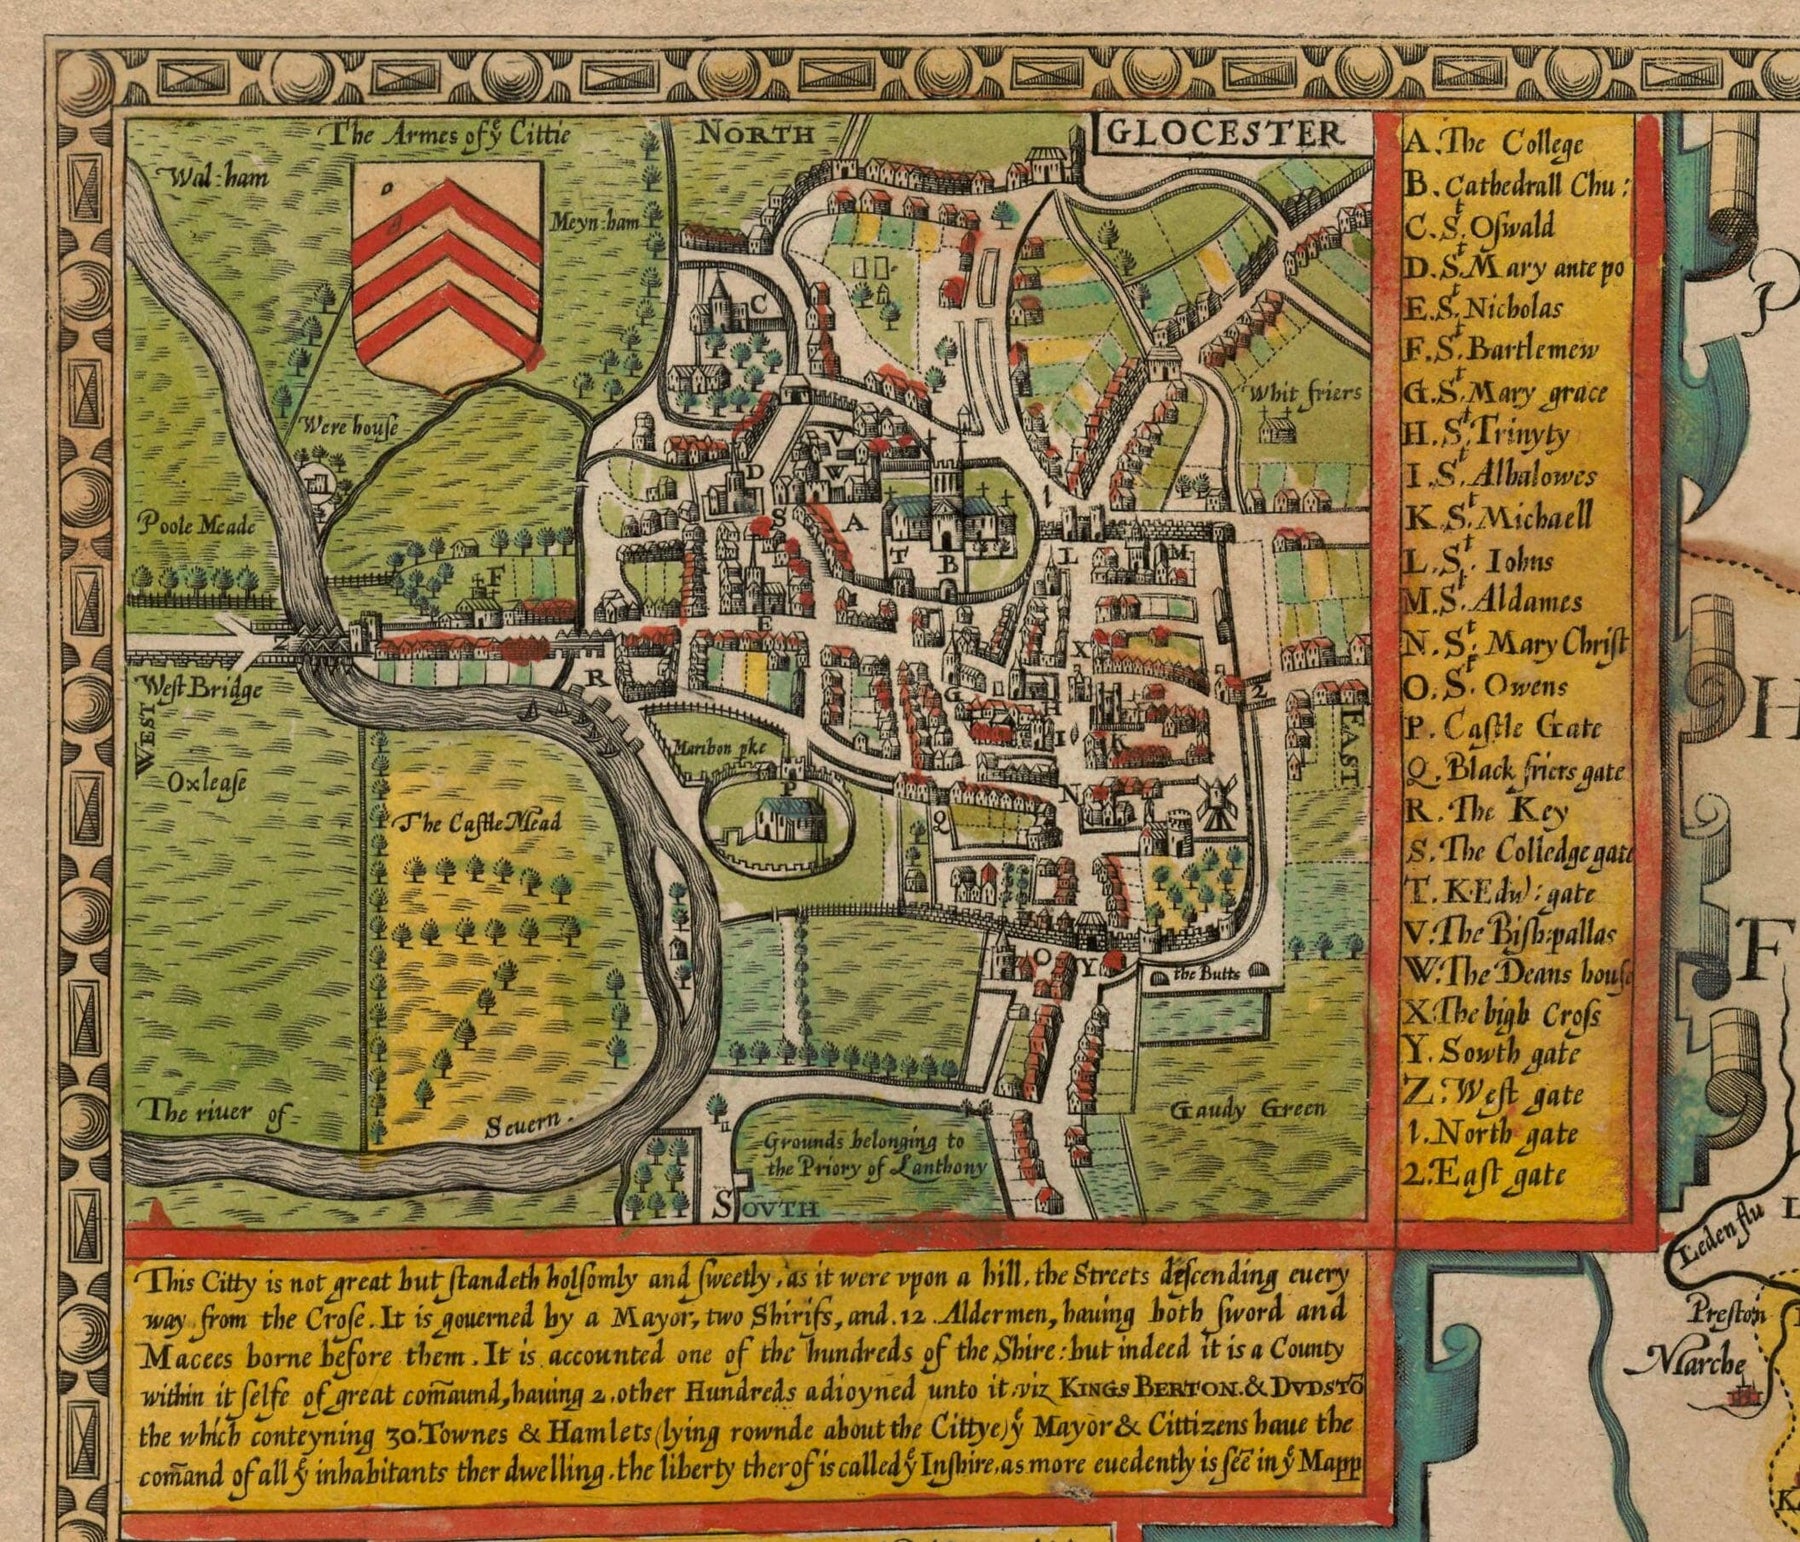 The Armes of yͤ Cittie
NORTH
GLOCESTER
Wal:ham
Meyn:ham
C
Were house
Whit friers
Poole Meade
D
V
W
S
A
1
F
T
B
L
M
E
Z
X
R
West Bridge
G
2
WEST
EAST
Maribon pke
I
K
Oxlease
P
N
The Castle Mead
Q
O
Y
the Butts
The riuer of=
Seuern.
Gaudy Green
Grounds belonging to
the Priory of Lanthony
SOVTH
A. The College
B. Cathedrall Chu:
C. Sᵗ. Oswald
D. Sᵗ. Mary ante po
E. Sᵗ. Nicholas
F. Sᵗ. Bartlemew
G. Sᵗ. Mary grace
H. Sᵗ. Trinyty
I. Sᵗ. Alhalowes
K. Sᵗ. Michaell
L. Sᵗ. Iohns
M. Sᵗ. Aldames
N. Sᵗ. Mary Christ
O. Sᵗ. Owens
P. Castle Gate
Q. Black friers gate
R. The Key
S. The Colledge gate
T. K. Edw: gate
V. The Bish: pallas
W. The Deans house
X. The high Cross
Y. Sowth gate
Z. West gate
1. North gate
2. East gate
This Citty is not great but standeth holsomly and sweetly, as it were vpon a hill, the Streets descending euery
way from the Crose. It is gouerned by a Mayor, two Shirifs, and .12 . Aldermen, hauing both sword and
Macees borne before them. It is accounted one of the hundreds of the Shire: but indeed it is a County
within it selfe of great com̄aund, hauing 2. other Hundreds adioyned unto it viz KINGS BERTON. & DVDSTO̅
the which conteyning 30. Townes & Hamlets (lying rownde about the Cittye) yͤ Mayor & Cittizens haue the
com̄and of all yͤ inhabitants ther dwelling. the liberty therof is called yͤ Inshire, as more euedently is sēē in yͤ Mapp
P
H
F
L
Leden flu
Preston
Marche